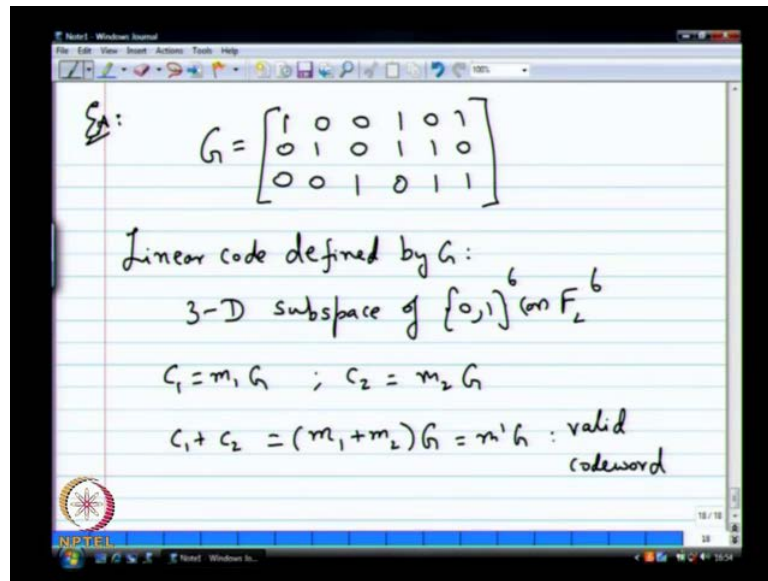 Note1 - Windows Journal
File Edit View Insert Actions Tools Help
100%
Ex:
G = [1 0 0 1 0 1
0 1 0 1 1 0
0 0 1 0 1 1]
Linear code defined by G:
3-D subspace of {0,1}^6 (on F_2^6
C_1 = m_1 G ; C_2 = m_2 G
C_1 + C_2 = (m_1 + m_2) G = m' G : valid
codeword
18 / 18
18
NPTEL
Note1 - Windows Jo...
16:54